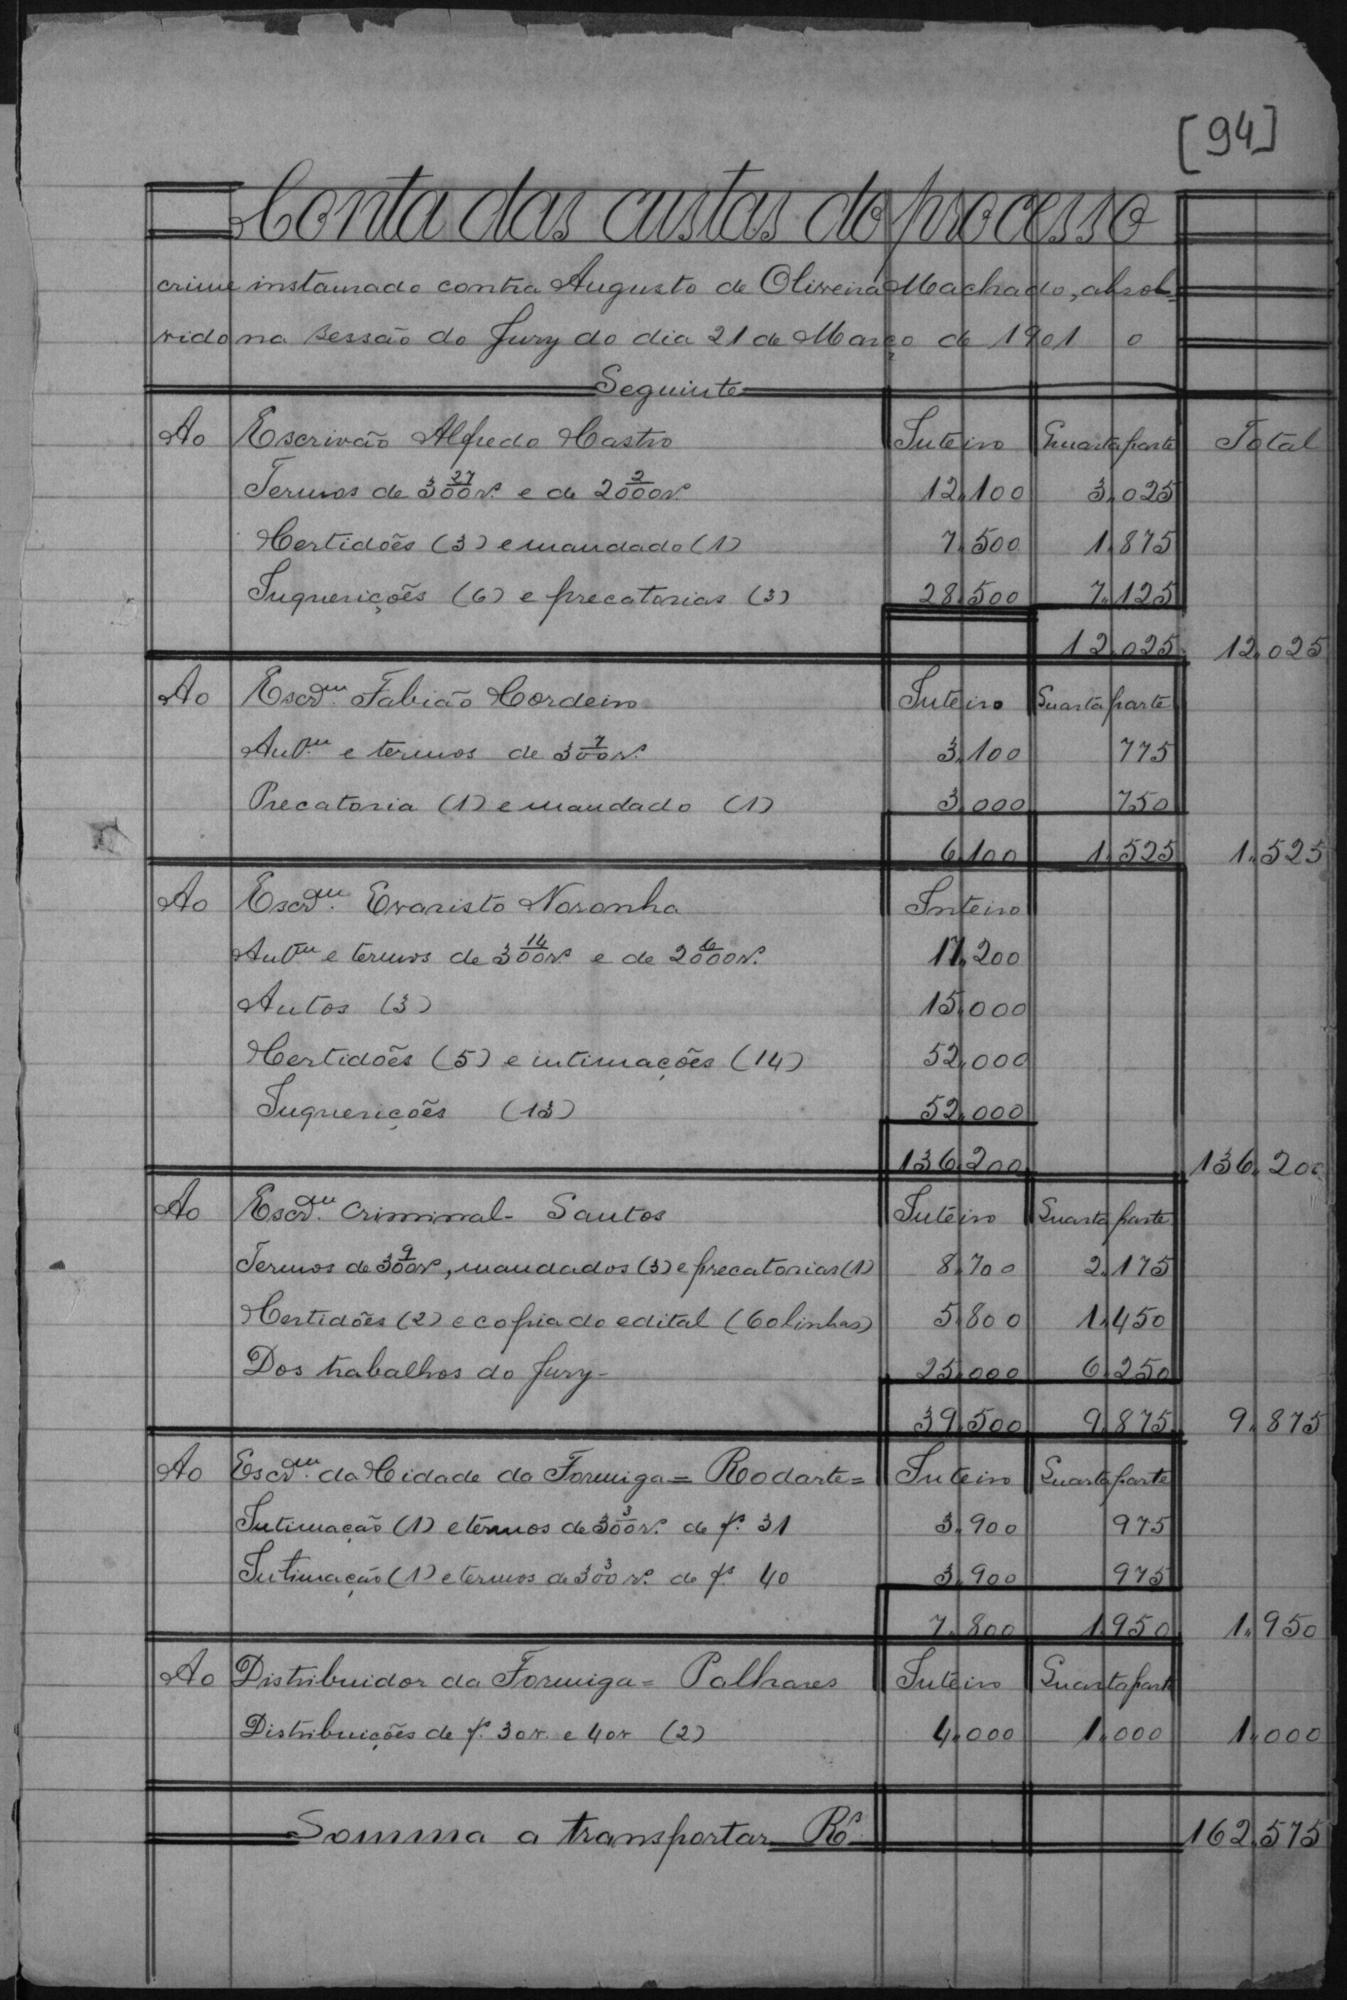 [94]
Conta das custas do processo
crime instaurado contra Augusto de Oliveira Machado, absol-
vido na sessão do Jury do dia 21 de Março de 1901 o
Seguinte
Ao Escrivão Alfredo Castro Inteiro Quarta parte Total
Termos de 300 27 rs. e de 2000 2 rs. 12.100 3.025
Certidões (3) e mandado (1) 7.500 1.875
Inquerições (6) e precatorias (3) 28.500 7.125
12.025 12.025
Ao Escram. Fabião Cordeiro Inteiro Quarta parte
Autam e termos de 300 7 rs. 3.100 775
Precatoria (1) e mandado (1) 3.000 750
6.100 1.525 1.525
Ao Escram. Evaristo Noronha Inteiro
Autam e termos de 300 14 rs e de 2000 6 rs. 17.200
Autos (3) 15.000
Certidões (5) e intimações (14) 52.000
Inquerições (13) 52.000
136.200 136.200
Ao Escram. Criminal - Santos Inteiro Quarta parte
Termos de 300 9 rs, mandados (3) e precatorias (1) 8.700 2.175
Certidões (2) e copia do edital (60 linhas) 5.800 1.450
Dos trabalhos do Jury - 25.000 6.250
39.500 9.875 9.875
Ao Escram. da Cidade da Formiga = Rodarte = Inteiro Quarta parte
Intimação (1) e termos de 300 3 rs. de fs. 31 3.900 975
Intimação (1) e termos de 300 3 rs. de fs. 40 3.900 975
7.800 1.950 1.950
Ao Distribuidor da Formiga = Palhares Inteiro Quarta parte
Distribuições de fs. 30v. e 40v (2) 4.000 1.000 1.000
Somma a transportar Rs 162.575